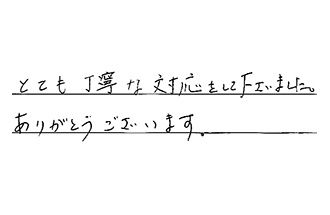 とても丁寧な対応をして下さいました。
ありがとうございます。